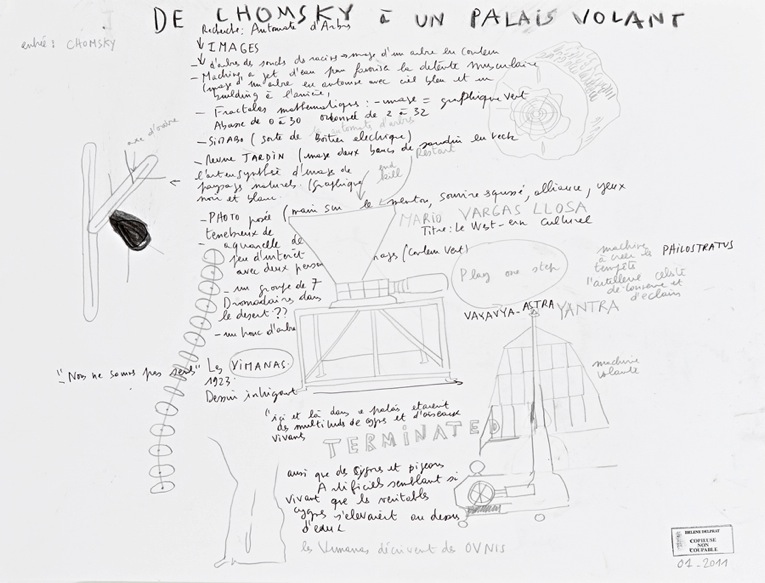 DE CHOMSKY à UN PALAIS VOLANT
entrée : CHOMSKY
Recherche : Automate d'Arbre
IMAGES
- d'arbre de ronds de racines → image d'un arbre en couleur
- Machine à jet d'eau pour favoriser la détente musculaire
(image d'un arbre en automne avec ciel bleu et un
building à l'arrière,
- Fractales mathématiques : - image = graphique vert
Abaisse de 0 à 30 ordonnée de 2 à 32
- SIMABO (sorte de Boîtier électrique)
axe d'ordre
- Revue JARDIN (image deux bancs de jardin en teck
Restart
end
kill
l'art en synthèse d'image de
paysages naturels. (Graphique
noir et blanc.
- PHOTO posée (main sur le menton, sourire esquissé, alliance, yeux
ténébreux de
MARIO VARGAS LLOSA
Titre : Le West-end Culturel
- aquarelle de
(Couleur vert)
jeu d'interet
avec deux person
nages
- un groupe de 7
Dromadaires dans
le desert ??
- un houc d'arbre
Play one step
machine
à créer la
tempête
PHILOSTRATUS
l'artillerie céleste
de tonnerre et
d'éclairs
VAYAVYA-ASTRA
YANTRA
machine
volante
"Nous ne sommes pas seuls"
Les VIMANAS.
1923.
Dessin intrigant
"ici et là dans ce palais étaient
des multitudes de cygnes et d'oiseaux
vivants
TERMINATED
ainsi que des cygnes et pigeons
Artificiels semblant si
vivant que les véritables
cygnes s'élevaient au dessus
d'eux
les Vimanas décrivent des OVNIS
HELENE DELPRAT
COPIEUSE
NON
COUPABLE
01-2011